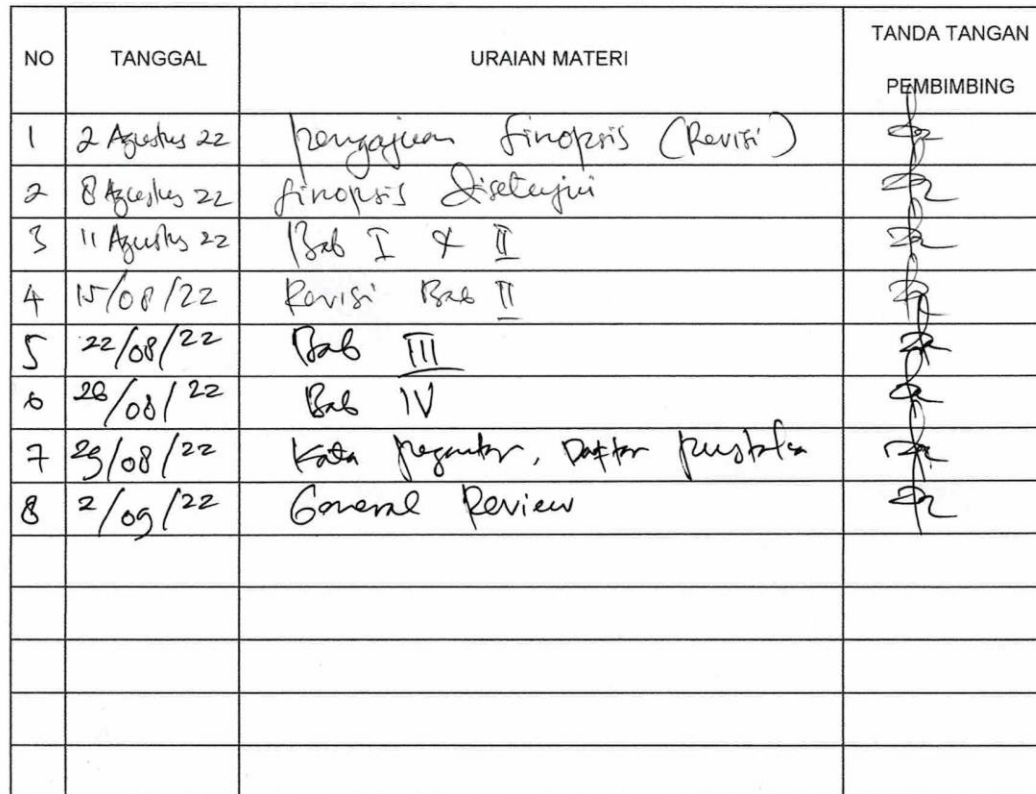 NO TANGGAL URAIAN MATERI TANDA TANGAN PEMBIMBING
1 2 Agustus 22 pengajuan Sinopsis (Revisi)
2 8 Agustus 22 Sinopsis Disetujui
3 11 Agustus 22 Bab I & II
4 15/08/22 Revisi Bab II
5 22/08/22 Bab III
6 26/08/22 Bab IV
7 29/08/22 Kata pegantar, Daftar pustaka
8 2/09/22 General Review